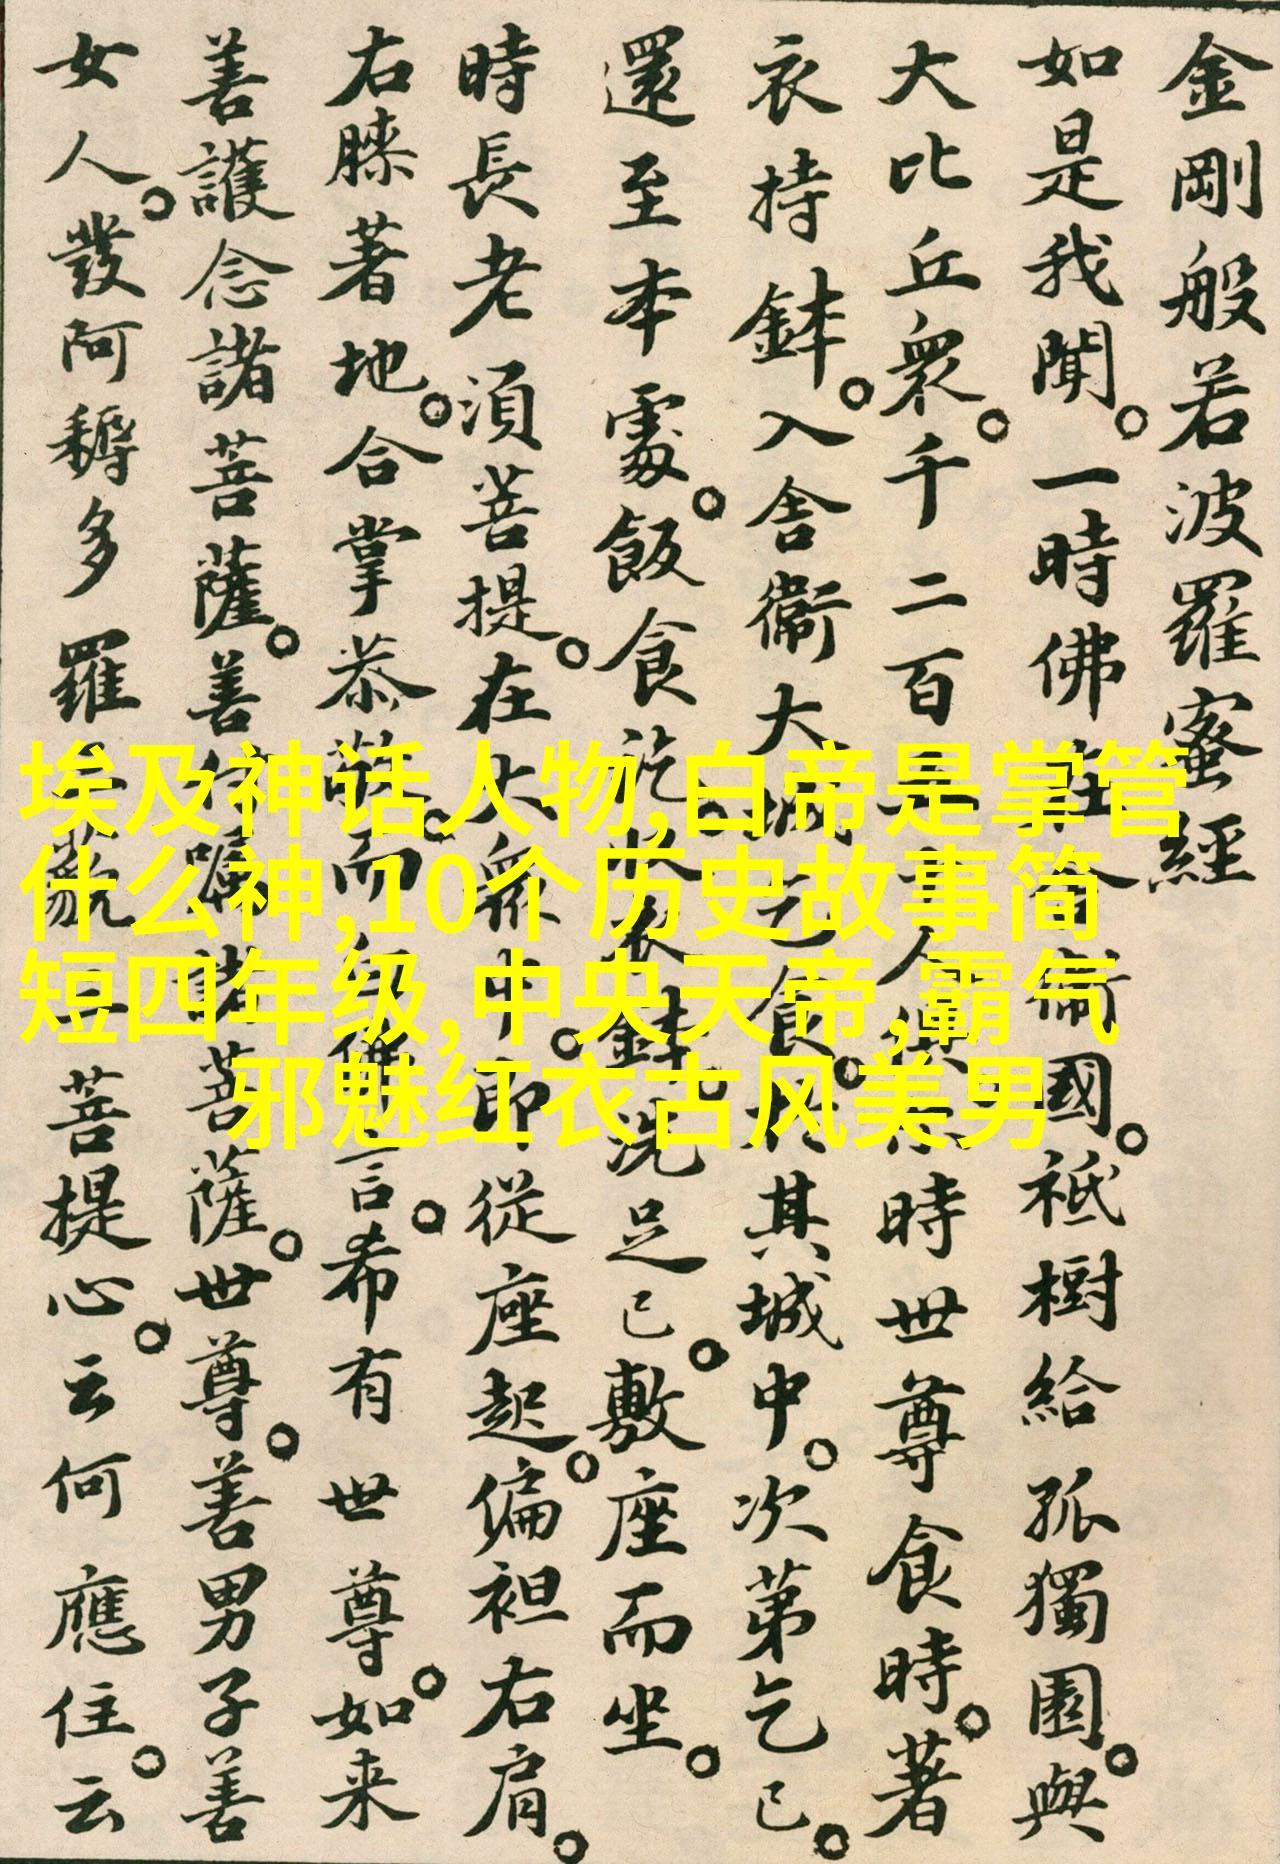 金剛般若波羅蜜經
如是我聞。一時佛在舍衛國。祇樹給孤獨園。與
大比丘衆。千二百五十人俱。尔時世尊食時。著
衣持鉢。入舍衛大城乞食。於其城中。次第乞已。
還至本處。飯食訖。收衣鉢。洗足已。敷座而坐。
時長老須菩提。在大衆中。即從座起。偏袒右肩。
右膝著地。合掌恭敬。而白佛言。希有世尊。如来
善護念諸菩薩。善付嘱諸菩薩。世尊。善男子善
女人。發阿耨多羅三藐三菩提心。云何應住。云
埃及神话人物,白帝是掌管
什么神,10个历史故事简
短四年级,中央天帝,霸气
邪魅红衣古风美男